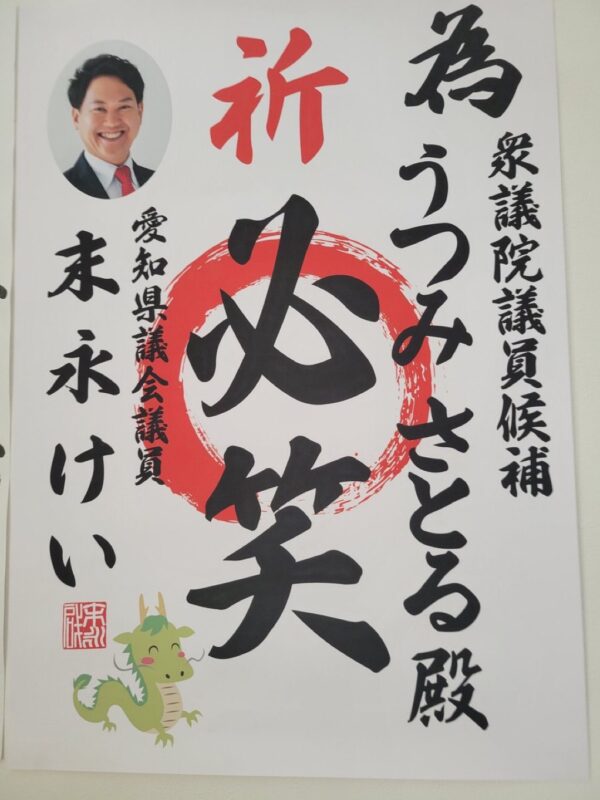 為
衆議院議員候補
うつみさとる殿
祈
必笑
愛知県議会議員
末永けい